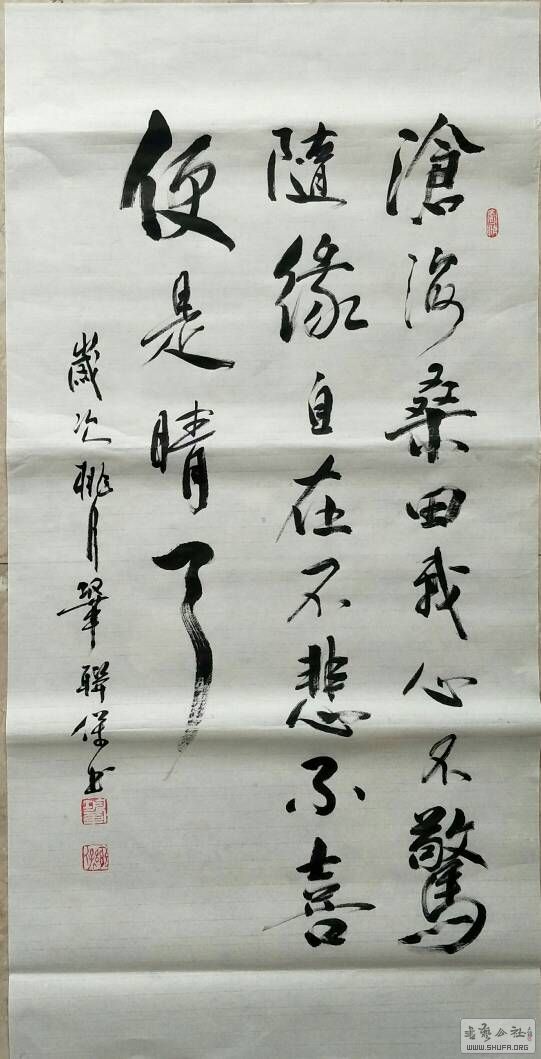 滄海桑田我心不驚
隨緣自在不悲不喜
便是晴了
歲次桃月鞏聯保書
书艺公社
WWW.SHUFA.ORG